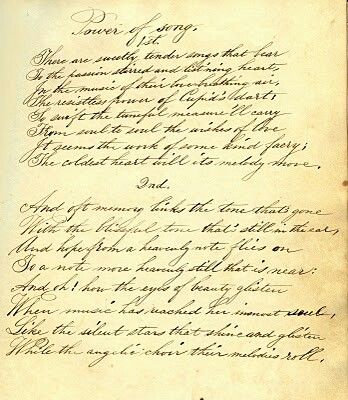 Power of song.
1st.
There are sweetly tender songs that bear
To the passion stirred and list'ning heart,
In the music of their love breathing air,
The resistless power of Cupid's dart;
So swift the tuneful measure'll carry
From soul to soul the wishes of love
It seems the work of some kind faery;
The coldest heart will its melody move.
2nd.
And oft memory links the tone that's gone
With the blissful tone that's still in the ear,
And hope from a heavenly note flies on
To a note more heavenly still that is near:
And oh! how the eyes of beauty glisten
When music has reached her inmost soul,
Like the silent stars that shine and glisten
While the angelic choir their melodies roll.